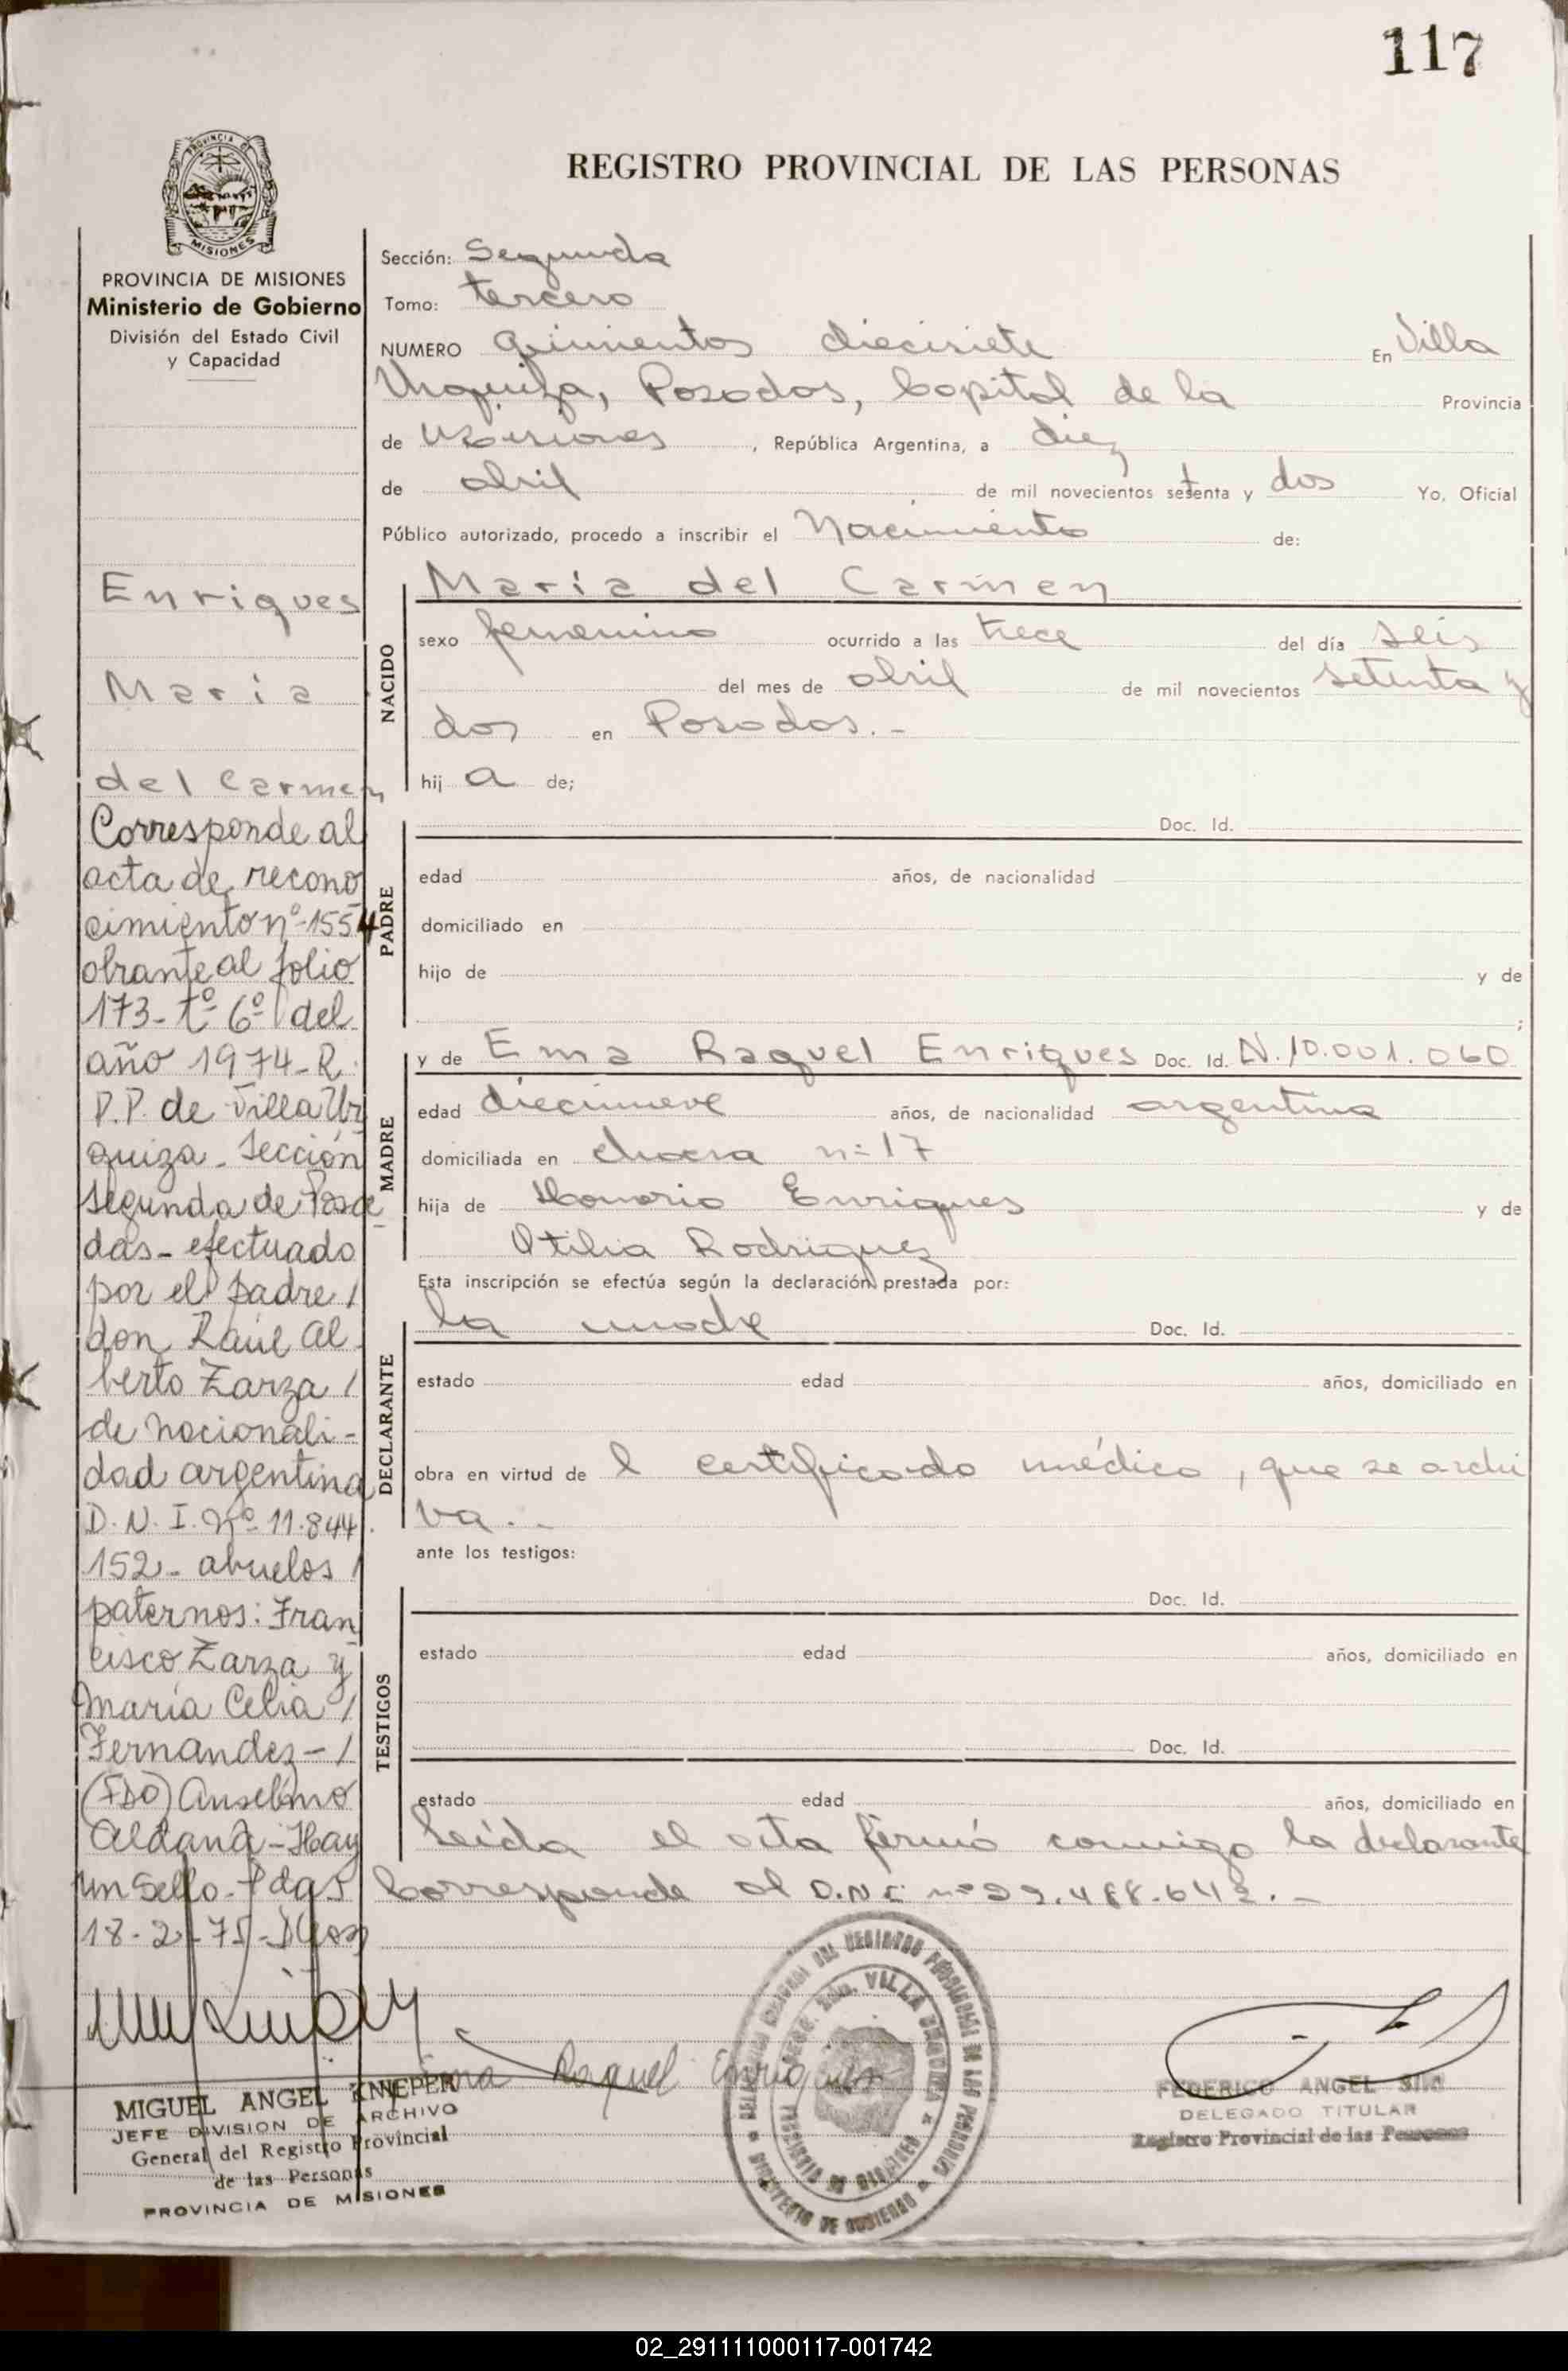 117
REGISTRO PROVINCIAL DE LAS PERSONAS
PROVINCIA DE
MISIONES
PROVINCIA DE MISIONES
Ministerio de Gobierno
División del Estado Civil
y Capacidad
Enriques
Maria
del Carmen
Corresponde al
acta de recono
cimiento nº 1554
obrante al folio
173- tº 6º del
año 1974- R.
P.P. de Villa Ur
quiza - Sección
Segunda de Posa
das - efectuado
por el padre /
don Raúl Al
berto Zarza /
de nacionali-
dad argentina
D.N.I. Nº 11.844.
152- abuelos /
paternos: Fran
cisco Zarza y
María Celia /
Fernandez - /
(FDO) Anselmo
Aldana - Hay
un Sello - Pdas
18-2-75-
MIGUEL ANGEL KNIEPER
JEFE DIVISION DE ARCHIVO
General del Registro Provincial
de las Personas
PROVINCIA DE MISIONES
Sección: Segunda
Tomo: tercero
NUMERO quinientos diecisiete En Villa
Urquiza, Posadas, Capital de la Provincia
de Misiones, República Argentina, a diez
de abril de mil novecientos setenta y dos Yo, Oficial
Público autorizado, procedo a inscribir el Nacimiento de:
NACIDO
María del Carmen
sexo femenino ocurrido a las trece del día seis
del mes de abril de mil novecientos setenta y
dos en Posadas.-
hij a de;
PADRE
Doc. Id.
edad años, de nacionalidad
domiciliado en
hijo de y de
;
MADRE
y de Ema Raquel Enriques Doc. Id. N.10.001.060
edad diecinueve años, de nacionalidad argentina
domiciliada en chacra nº 17
hija de Honorio Enriques y de
Otilia Rodriguez
Esta inscripción se efectúa según la declaración prestada por:
DECLARANTE
la madre Doc. Id.
estado edad años, domiciliado en
obra en virtud de l certificado médico, que se archi
va.-
ante los testigos:
TESTIGOS
Doc. Id.
estado edad años, domiciliado en
Doc. Id.
estado edad años, domiciliado en
Leída el acta firmó conmigo la declarante
Corresponde al D.N.I. nº 22.488.642.-
Ema Raquel Enriques
VILLA URQUIZA
MINISTERIO DE GOBIERNO
FEDERICO ANGEL
DELEGADO TITULAR
Registro Provincial de las Personas
02_291111000117-001742